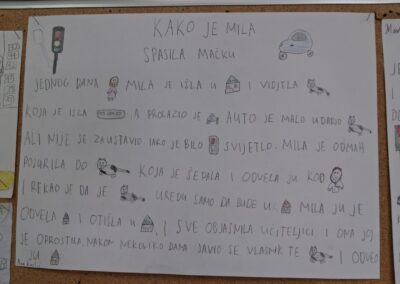 KAKO JE MILA
SPASILA MAČKU
JEDNOG DANA MILA JE IŠLA U I VIDJELA
KOJA JE ISLA , A PROLAZIO JE AUTO JE MALO UDARIO
ALI NIJE SE ZAUSTAVIO IAKO JE BILO SVIJETLO. MILA JE ODMAH
POJURILA DO KOJA JE ŠEPALA I ODVELA JU KOD
I REKAO JE DA JE UREDU SAMO DA BUDE U MILA JU JE
ODVELA I OTIŠLA U , I SVE OBJASNILA UČITELJICI I ONA JOJ
JE OPROSTILA. NAKON NEKOLIKO DANA JAVIO SE VLASNIK TE I ODVEO
JU